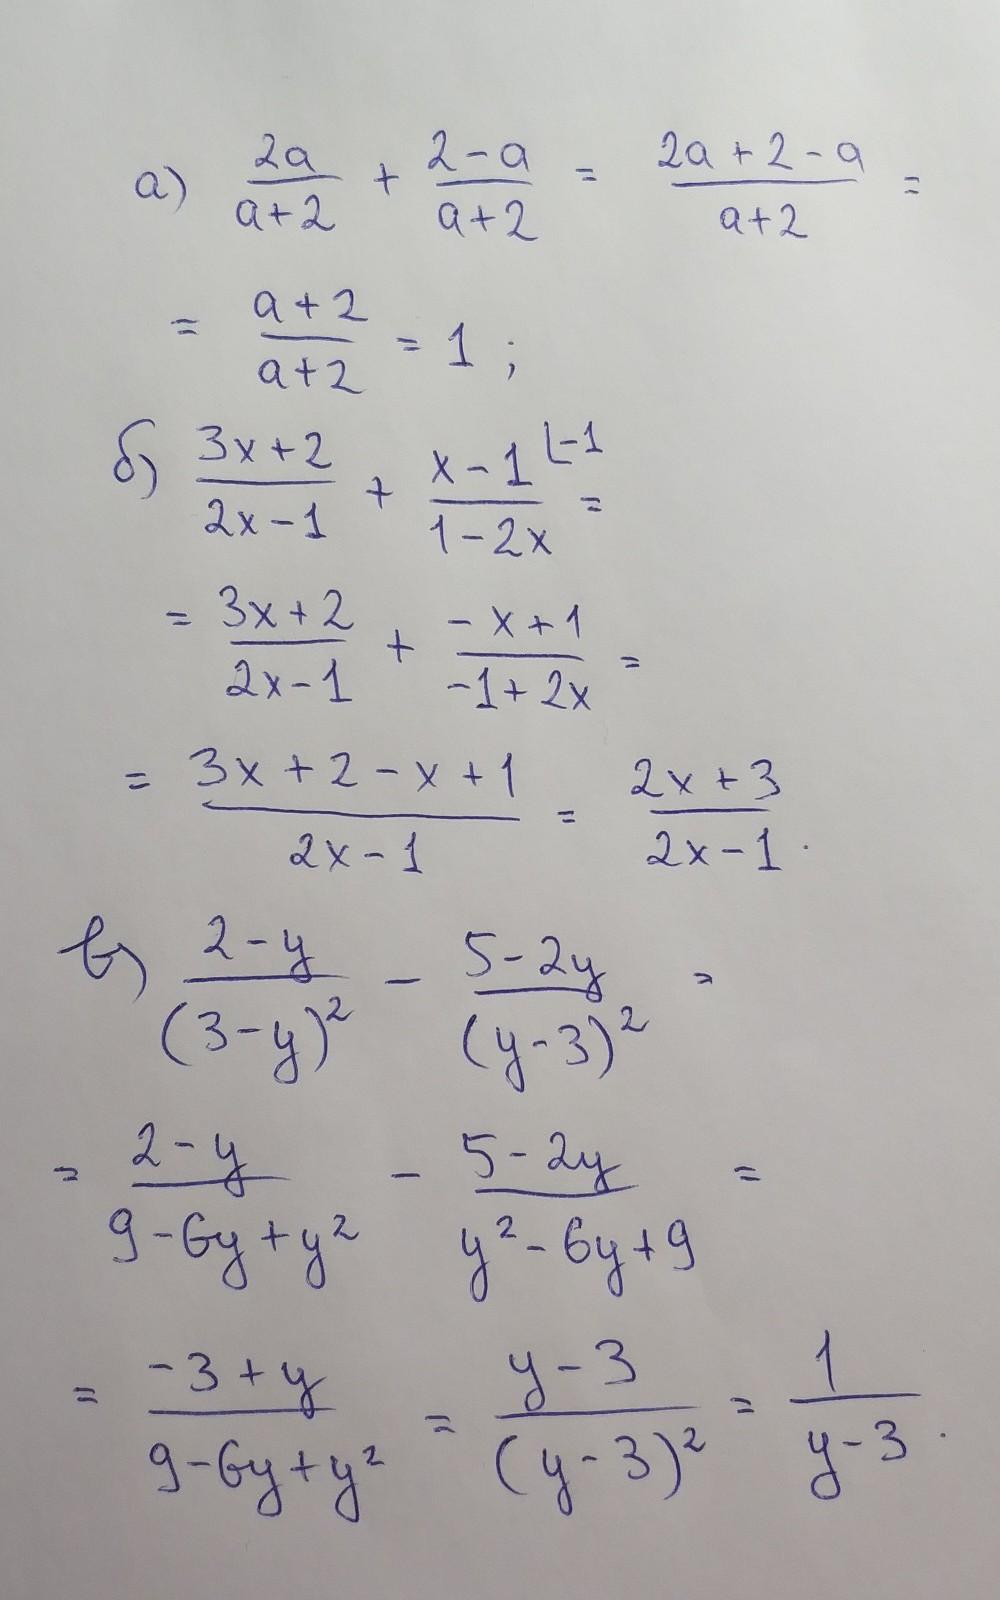 а) 2a/(a+2) + (2-a)/(a+2) = (2a+2-a)/(a+2) =
= (a+2)/(a+2) = 1 ;
б) (3x+2)/(2x-1) + (x-1)/(1-2x) ⌊-1 =
= (3x+2)/(2x-1) + (-x+1)/(-1+2x) =
= (3x+2-x+1)/(2x-1) = (2x+3)/(2x-1).
в) (2-y)/(3-y)² - (5-2y)/(y-3)² =
= (2-y)/(9-6y+y²) - (5-2y)/(y²-6y+9) =
= (-3+y)/(9-6y+y²) = (y-3)/(y-3)² = 1/(y-3).